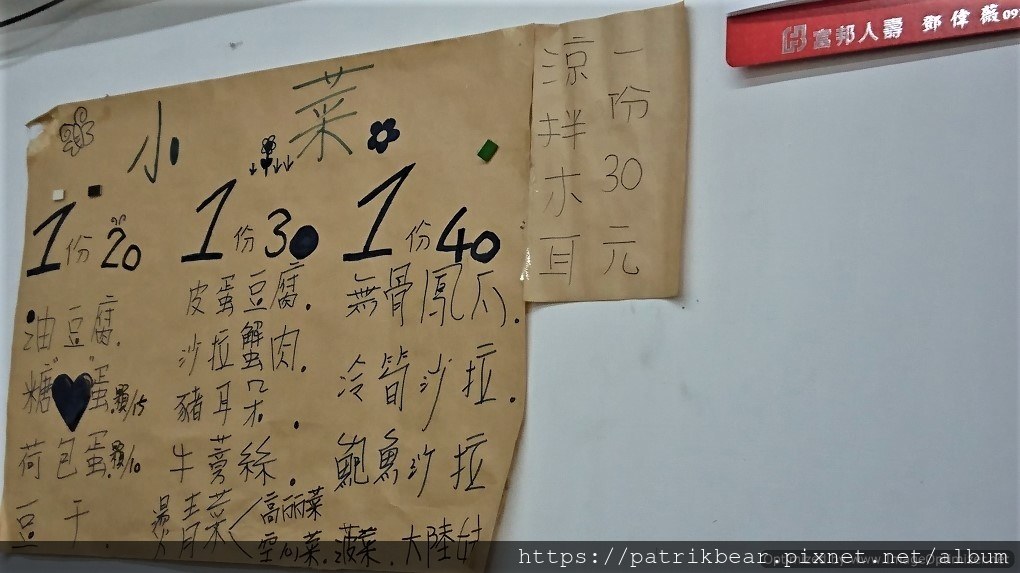 小菜
1份20
油豆腐.
糖♥蛋.顆/15
荷包蛋.顆/10
豆干.
1份30
皮蛋豆腐.
沙拉蟹肉.
豬耳朵.
牛蒡絲.
燙青菜<高麗菜
空心菜.菠菜.大陸妹
1份40
無骨鳳爪.
冷筍沙拉.
鮑魚沙拉
一份30元
涼拌木耳
富邦人壽 鄧偉薇09
https://patrikbear.pixnet.net/album